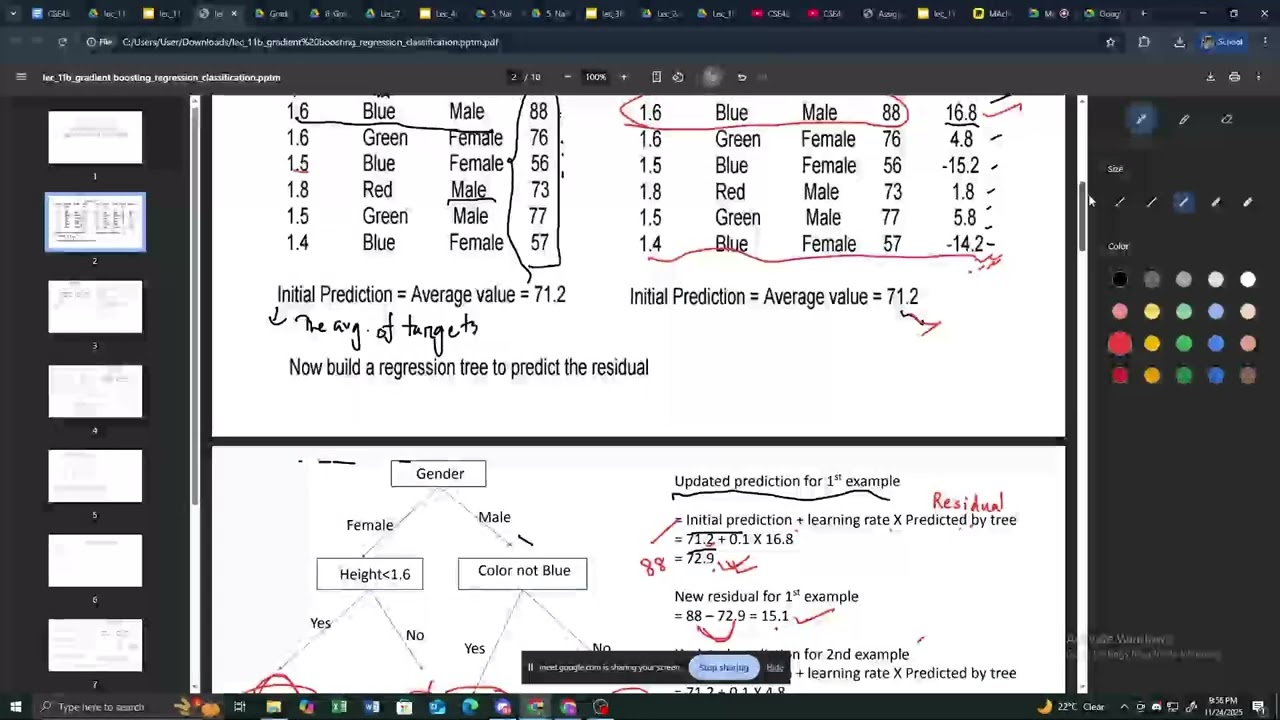 File C:/Users/User/Downloads/lec_11b_gradient%20boosting_regression_classification.pptm.pdf
School
lec_11b_gradient boosting_regression_classification.pptm
2 / 10
100%
1.6 Blue Male 88
1.6 Green Female 76
1.5 Blue Female 56
1.8 Red Male 73
1.5 Green Male 77
1.4 Blue Female 57
Initial Prediction = Average value = 71.2
The avg. of targets
1.6 Blue Male 88 16.8
1.6 Green Female 76 4.8
1.5 Blue Female 56 -15.2
1.8 Red Male 73 1.8
1.5 Green Male 77 5.8
1.4 Blue Female 57 -14.2
Initial Prediction = Average value = 71.2
Now build a regression tree to predict the residual
Gender
Female
Male
Height<1.6
Color not Blue
Yes
No
Yes
No
Updated prediction for 1st example
Residual
= Initial prediction + learning rate X Predicted by tree
= 71.2 + 0.1 X 16.8
88 = 72.9
New residual for 1st example
= 88 – 72.9 = 15.1
prediction for 2nd example
+ learning rate X Predicted by tree
= 71.2 + 0.1 X 4.8
meet.google.com is sharing your screen
Stop sharing
Hide
1
2
3
4
5
6
7
Size
Color
Activate Windows
Type here to search
22°C Clear
9:56 PM
11/24/2025